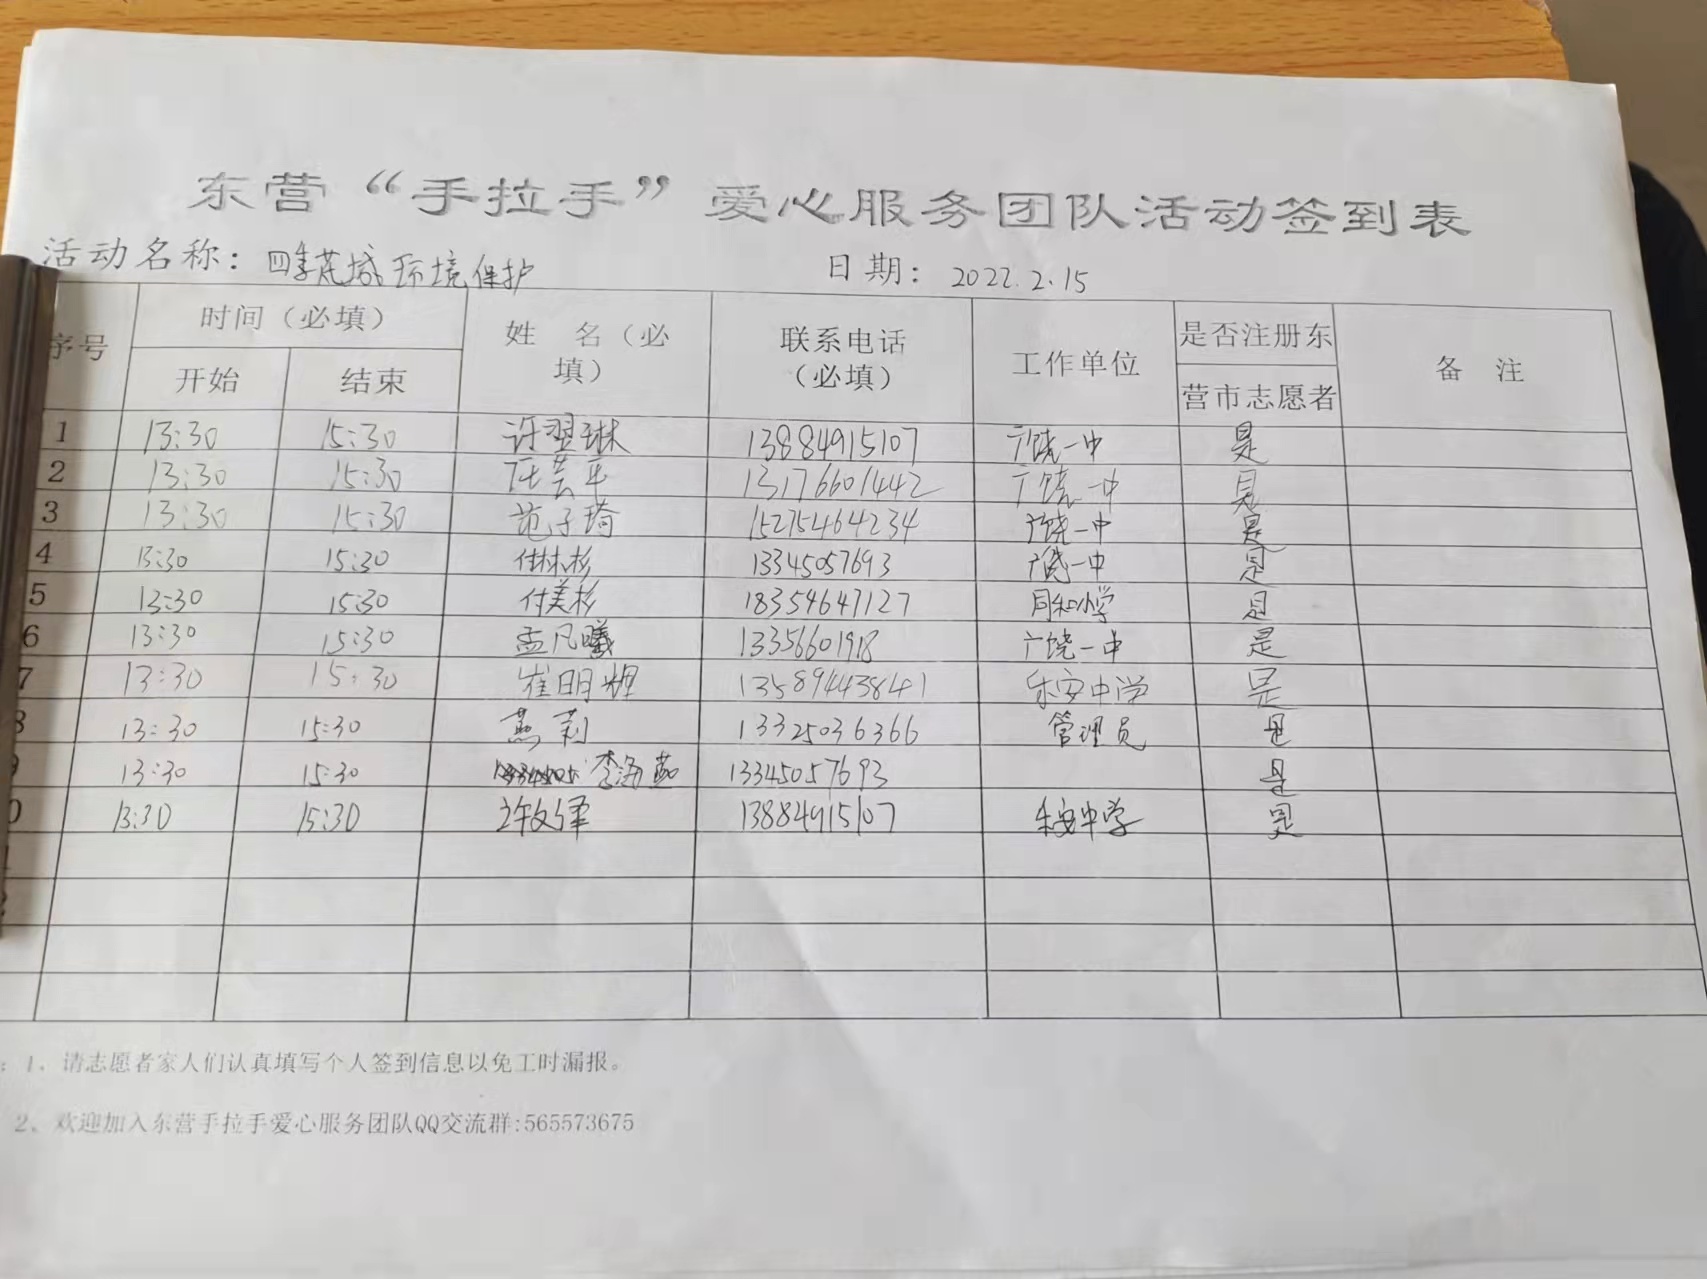 东营“手拉手”爱心服务团队活动签到表
活动名称：四季花城环境保护 日期：2022.2.15
序号 时间（必填） 姓 名（必填） 联系电话（必填） 工作单位 是否注册东营市志愿者 备 注
开始 结束
1 13:30 15:30 许翌琳 13884915107 广饶一中 是
2 13:30 15:30 13176601442 广饶一中 是
3 13:30 15:30 范子琦 15275464234 广饶一中 是
4 13:30 15:30 付林杉 13345057693 广饶一中 是
5 13:30 15:30 付美杉 18354647127 同和小学 是
6 13:30 15:30 孟凡曦 13356601918 广饶一中 是
7 13:30 15:30 崔明辉 13589443841 乐安中学 是
8 13:30 15:30 燕莉 13325036366 管理员 是
9 13:30 15:30 李海燕 13345057693 是
0 13:30 15:30 许文泽 13884915107 乐安中学 是
：1、请志愿者家人们认真填写个人签到信息以免工时漏报。
2、欢迎加入东营手拉手爱心服务团队QQ交流群:565573675